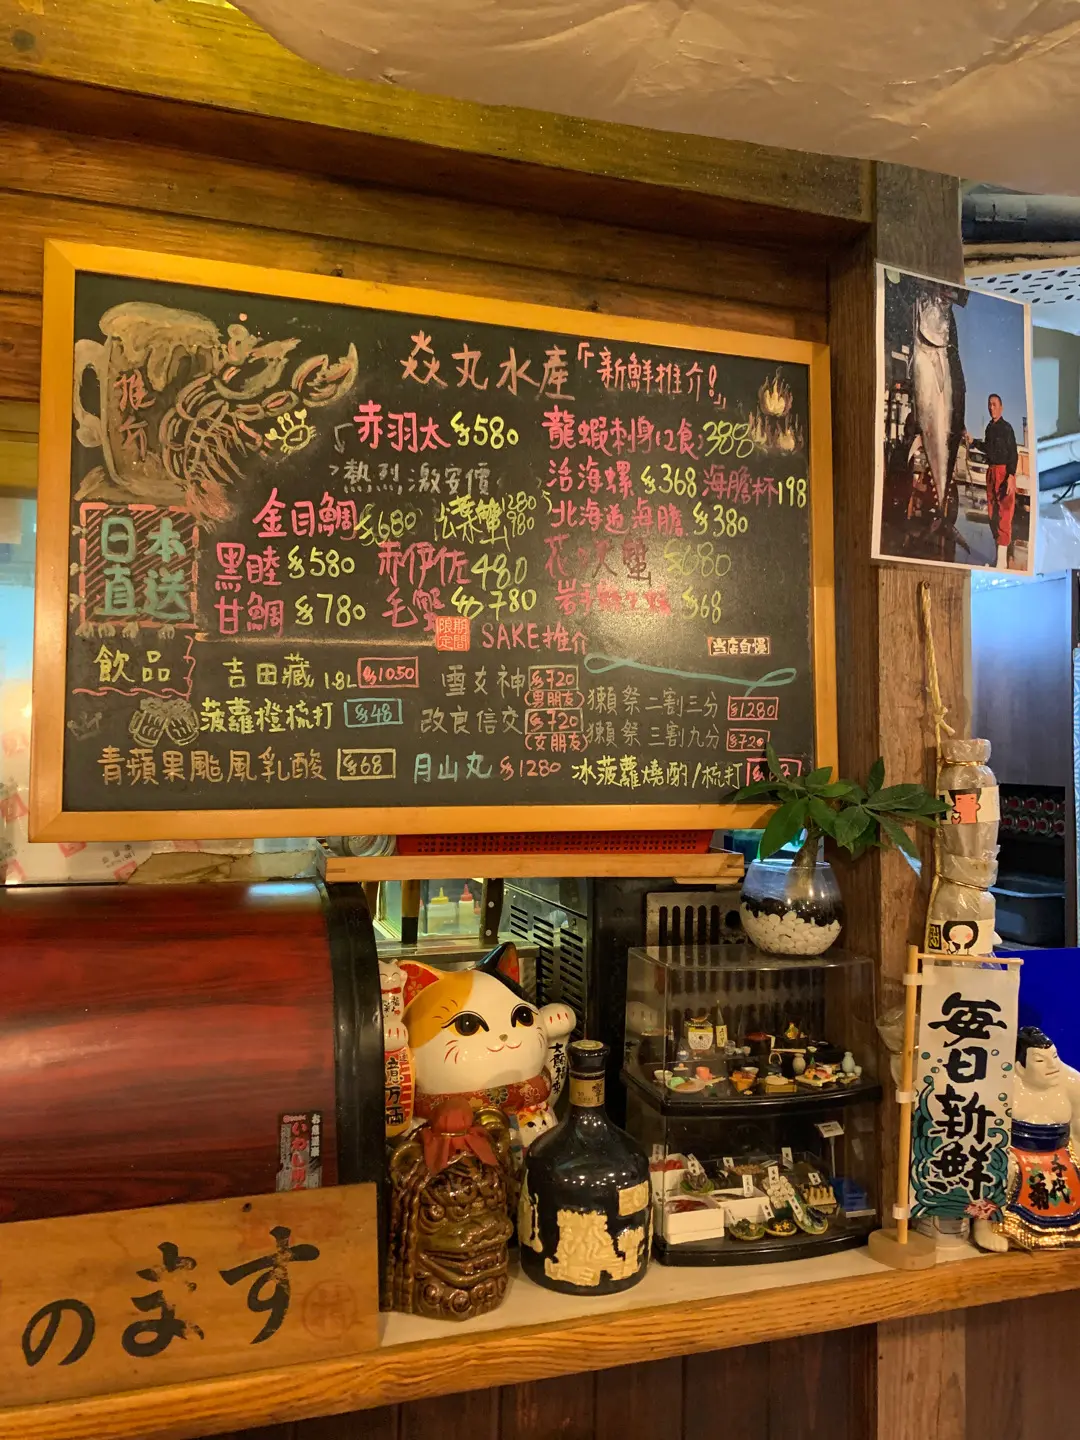 焱丸水產「新鮮推介!」
推介
赤羽太 $580
熱烈激安價
龍蝦刺身(2食) 388
活海螺 $368 海膽杯 198
日本
直送
金目鯛 $680 松葉蟹 1280 980
北海道海膽 $380
黑睦 $580 赤伊佐 480
花咲蟹 $680
甘鯛 $780 毛蟹 $780
$68
期間限定 SAKE推介
当店自慢
飲品
吉田藏 1.8L $1050
雪女神 $720
(男朋友)
獺祭二割三分 $1280
菠蘿橙梳打 $48
改良信交 $720
(女朋友)
獺祭三割九分 $720
青蘋果颱風乳酸 $68
月山丸 $1280
冰菠蘿燒酌/梳打
毎日新鮮
千代菊
のます
いわし